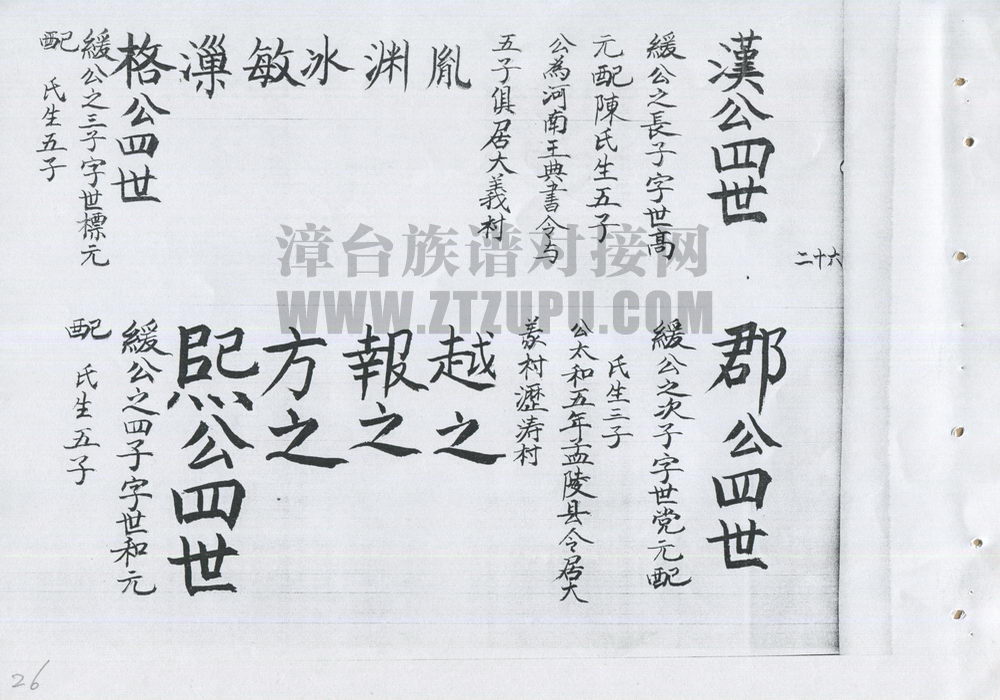 漢公四世
緩公之長子字世髙
元配陳氏生五子
公為河南王典書令与
五子俱居大義村
胤
渊
冰
敏
漅
格公四世
緩公之三子字世標元
配 氏生五子
二十六
郡公四世
緩公之次子字世党元配
氏生三子
公太和五年孟陵县令居大
義村瀝涛村
越之
報之
方之
熙公四世
緩公之四子字世和元
配 氏生五子
漳台族谱对接网
WWW.ZTZUPU.COM
26